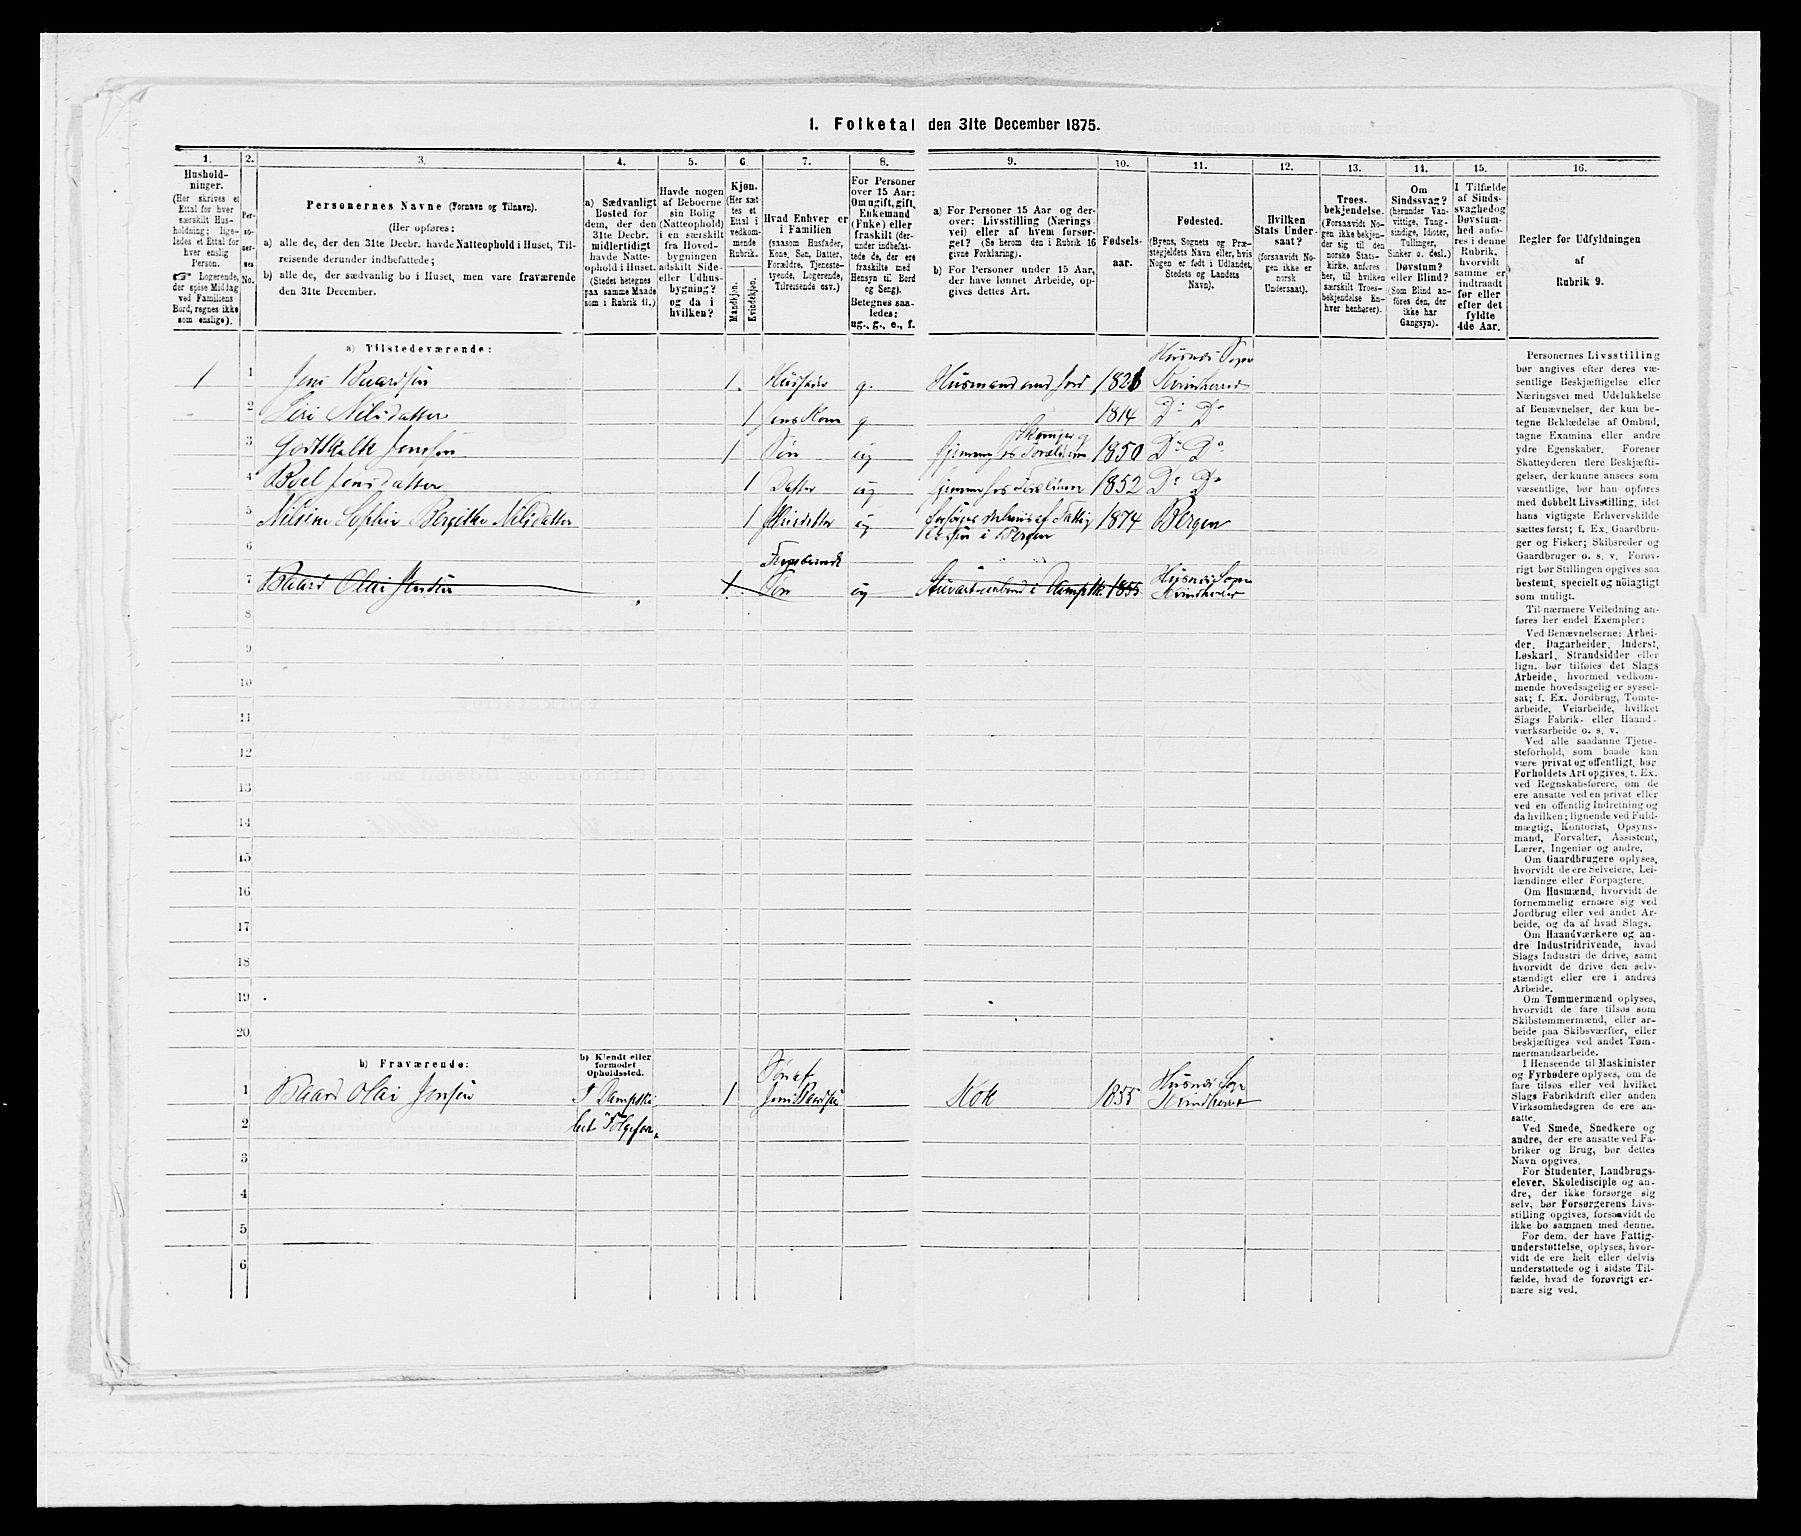 1. Folketal den 31te December 1875.
1.
2.
3.
4.
5.
6.
7.
8.
9.
10.
11.
12.
13.
14.
15.
16.
Hushold-
ninger.
(Her skrives et
Ettal for hver
særskilt Hus-
holdning; lige-
ledes et Ettal for
hver enslig
Person.
☞ Logerende,
der spise Middag
ved Familiens
Bord, regnes ikke
som enslige).
Per-
so-
ner-
nes
No.
Personernes Navne (Fornavn og Tilnavn).
(Her opføres:
a) alle de, der den 31te Decbr. havde Natteophold i Huset, Til-
reisende derunder indbefattede;
b) alle de, der sædvanlig bo i Huset, men vare fraværende
den 31te December.
a) Sædvanligt
Bosted for
dem, der den
31te Decbr.
midlertidigt
havde Natte-
ophold i Huset.
(Stedet betegnes
paa samme Maade
som i Rubrik 11.)
Havde nogen
af Beboerne
sin Bolig
(Natteophold)
i en særskilt
fra Hoved-
bygningen
adskilt Side-
eller Udhus-
bygning?
og da i
hvilken?
Kjøn.
(Her sæt-
tes et
Ettal i
vedkom-
mende
Rubrik.
Mandkjøn.
Kvindekjøn.
Hvad Enhver er
i Familien
(saasom Husfader,
Kone, Søn, Datter,
Forældre, Tjeneste-
tyende, Logerende,
Tilreisende osv.)
For Personer
over 15 Aar:
Om ugift, gift,
Enkemand
(Enke) eller
fraskilt (der-
under indbefat-
tede de, der ere
fraskilte med
Hensyn til Bord
og Seng).
Betegnes saa-
ledes:
ug., g., e., f.
a) For Personer 15 Aar og der-
over: Livsstilling (Nærings-
vei) eller af hvem forsør-
get? (Se herom den i Rubrik 16
givne Forklaring).
b) For Personer under 15 Aar,
der have lønnet Arbeide, op-
gives dettes Art.
Fødsels-
aar.
Fødested.
(Byens, Sognets og Præ-
stegjeldets Navn eller, hvis
Nogen er født i Udlandet,
Stedets og Landets
Navn).
Hvilken
Stats Under-
saat?
(forsaavidt No-
gen ikke er
norsk
Undersaat).
Troes-
bekjendelse.
(Forsaavidt No-
gen ikke bekjen-
der sig til den
norske Stats-
kirke, anføres
her, til hvilken
særskilt Troes-
bekjendelse En-
hver henhører).
Om
Sindssvag?
(herunder Van-
vittige, Tung-
sindige, Idioter,
Tullinger,
Sinker o. desl.)
Døvstum?
eller Blind?
(Som Blind an-
føres den, der
ikke har
Gangsyn).
I Tilfælde
af Sinds-
svaghed og
Døvstum-
hed anfø-
res i denne
Rubrik,
hvorvidt
samme er
indtraadt
før eller
efter det
fyldte
4de Aar.
Regler for Udfyldningen
af
Rubrik 9.
a) Tilstedeværende:
1 1 Jens Baardsen 1. Husfader g. Husmand med Jord 1821 Husnes Sogn Kvinherred
2 Siri Nilsdatter 1 hans Kone g 1814 Do Do
3 Godtskalk Jenssen 1 Søn ug hjemme hos Forældrene 1850 Do Do
4 Boel Jensdatter 1 Datter ug hjemme hos Forældrene 1852 Do Do
5 Nilsine Sophie Bergitte Nilsdatter 1 Pleiedatter ug forsørges af Fattig i Bergen 1874 Bergen
6
7 Baard Olai Jensen 1 Søn ug i Dampsk. 1855 Husnes Sogn Kvindherred
8
9
10
11
12
13
14
15
16
17
18
19
20
b) Fraværende:
b) Kjendt eller
formodet
Opholdssted.
1 Baard Olai Jensen I Dampski- 1 Søn af Jens Baardsen Kok 1855 Husnes Sogn Kvindherred
2 bet "Folgefon"
3
4
5
6
Personernes Livsstilling
bør angives efter deres væ-
sentlige Beskjæftigelse eller
Næringsvei med Udelukkelse
af Benævnelser, der kun be-
tegne Beklædelse af Ombud,
tagne Examina eller andre
ydre Egenskaber. Forener
Skatteyderen flere Beskjæfti-
gelser, der kunne ansees som
væsentlige, bør han opføres
med dobbelt Livsstilling, idet
hans vigtigste Erhvervskilde
sættes først; f. Ex. Gaardbru-
ger og Fisker; Skibsreder og
Gaardbruger o. s. v. Forøv-
rigt bør Stillingen opgives saa
bestemt, specielt og nøiagtigt
som muligt.
Til nærmere Veiledning an-
føres her endel Exempler:
Ved Benævnelserne: Arbei-
der, Dagarbeider, Inderst,
Løskarl, Strandsidder eller
lign. bør tilføies det Slags
Arbeide, hvormed vedkom-
mende hovedsagelig er syssel-
sat; f. Ex. Jordbrug, Tomte-
arbeide, Veiarbeide, hvilket
Slags Fabrik- eller Haand-
værksarbeide o. s. v.
Ved alle saadanne Tjene-
steforhold, som baade kan
være privat og offentligt, bør
Forholdets Art opgives, t. Ex.
ved Regnskabsførere, om de
ere ansatte ved en privat eller
ved en offentlig Indretning og
da hvilken; lignende ved Fuld-
mægtig, Kontorist, Opsyns-
mand, Forvalter, Assistent,
Lærer, Ingeniør og andre.
Om Gaardbrugere oplyses,
hvorvidt de ere Selveiere, Lei-
lændinge eller Forpagtere.
Om Husmænd, hvorvidt de
fornemmelig ernære sig ved
Jordbrug eller ved andet Ar-
beide, og da af hvad Slags.
Om Haandværkere og an-
dre Industridrivende, hvad
Slags Industri de drive, samt
hvorvidt de drive den selv-
stændigt eller ere i andres
Arbeide.
Om Tømmermænd oplyses,
hvorvidt de fare tilsøs som
Skibstømmermænd, eller ar-
beide paa Skibsværfter, eller
beskjæftiges ved andet Tøm-
mermandsarbeide.
I Henseende til Maskinister
og Fyrbødere oplyses, om de
fare tilsøs eller ved hvilket
Slags Fabrikdrift eller anden
Virksomhedsgren de ere an-
satte.
Ved Smede, Snedkere og
andre, der ere ansatte ved Fa-
briker og Brug, bør dettes
Navn opgives.
For Studenter, Landbrugs-
elever, Skoledisciple og an-
dre, der ikke forsørge sig
selv, bør Forsørgerens Livs-
stilling opgives, forsaavidt de
ikke bo sammen med denne.
For dem, der have Fattig-
understøttelse, oplyses, hvor-
vidt de ere helt eller delvis
understøttede og i sidste Til-
fælde, hvad de forøvrigt er-
nære sig ved.